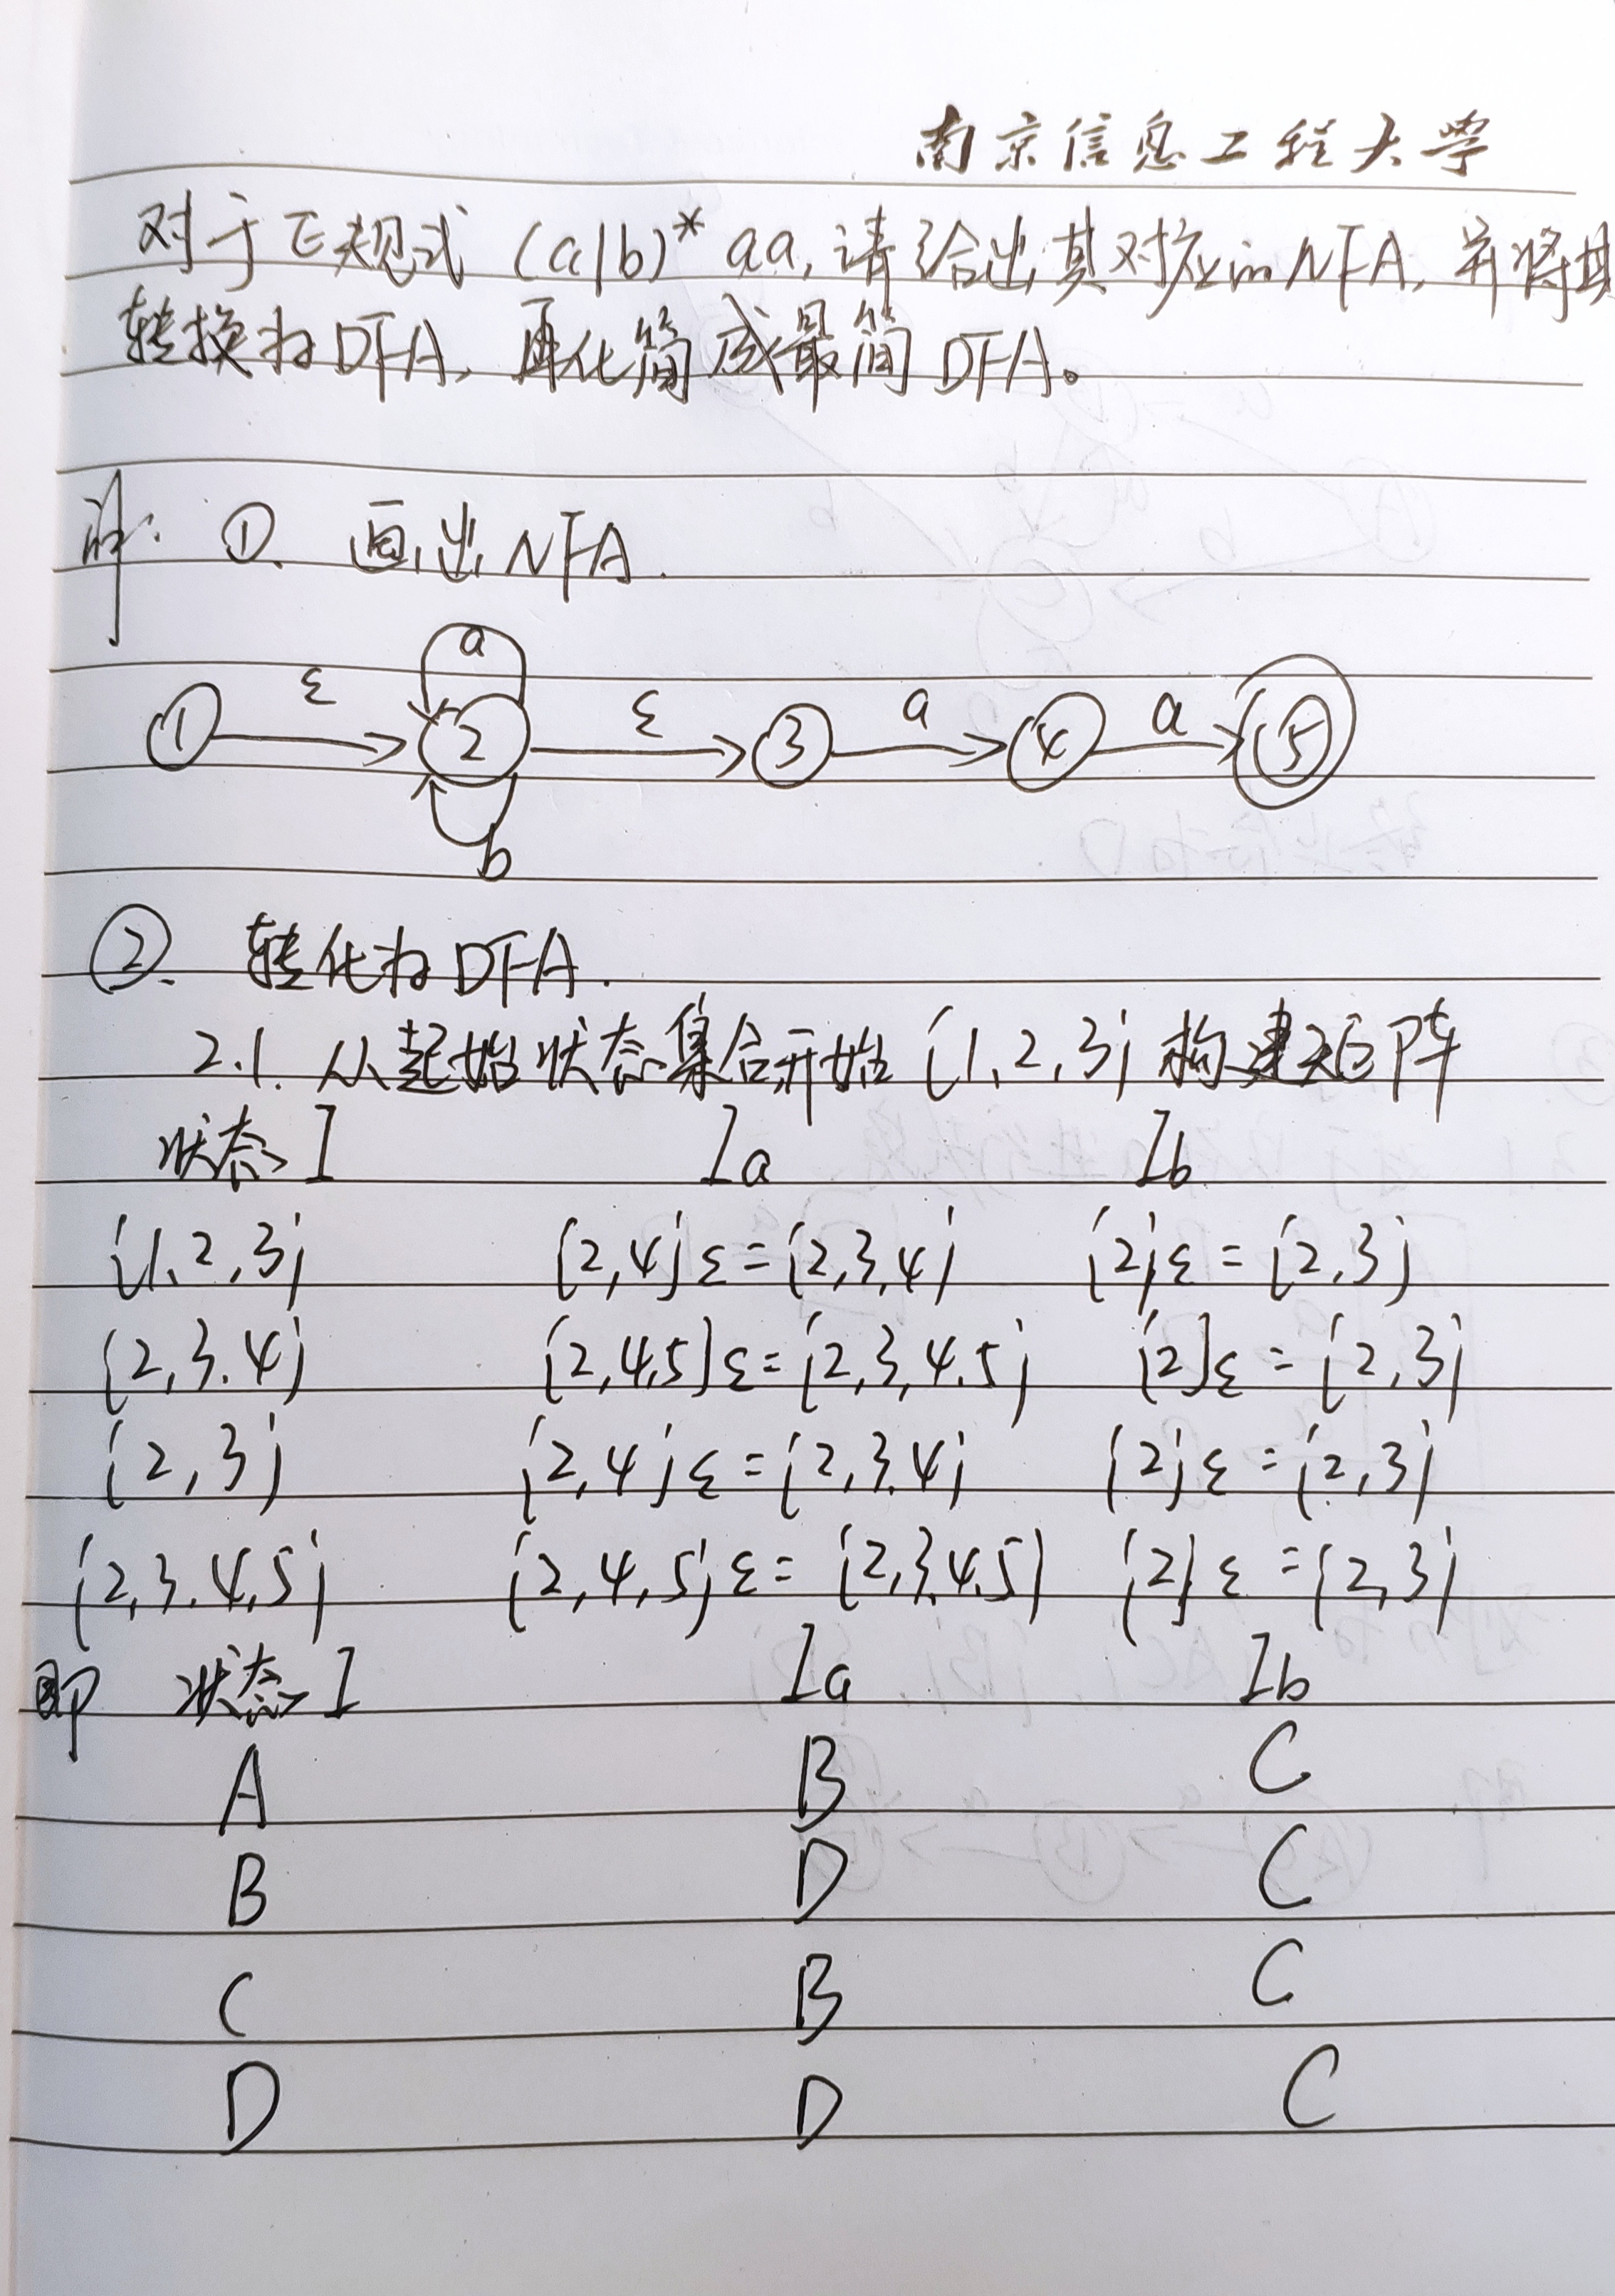 南京信息工程大学
对于正规式 (a|b)* aa, 请给出其对应的NFA, 并将其
转换为DFA, 再化简成最简DFA。
解: ①. 画出NFA.
a
ε ε a a
1 2 3 4 5
b
②. 转化为DFA.
2.1. 从起始状态集合开始 {1,2,3} 构建矩阵
状态I Ia Ib
{1,2,3} {2,4}ε={2,3,4} {2}ε={2,3}
{2,3,4} {2,4,5}ε={2,3,4,5} {2}ε={2,3}
{2,3} {2,4}ε={2,3,4} {2}ε={2,3}
{2,3,4,5} {2,4,5}ε={2,3,4,5} {2}ε={2,3}
即 状态I Ia Ib
A B C
B D C
C B C
D D C